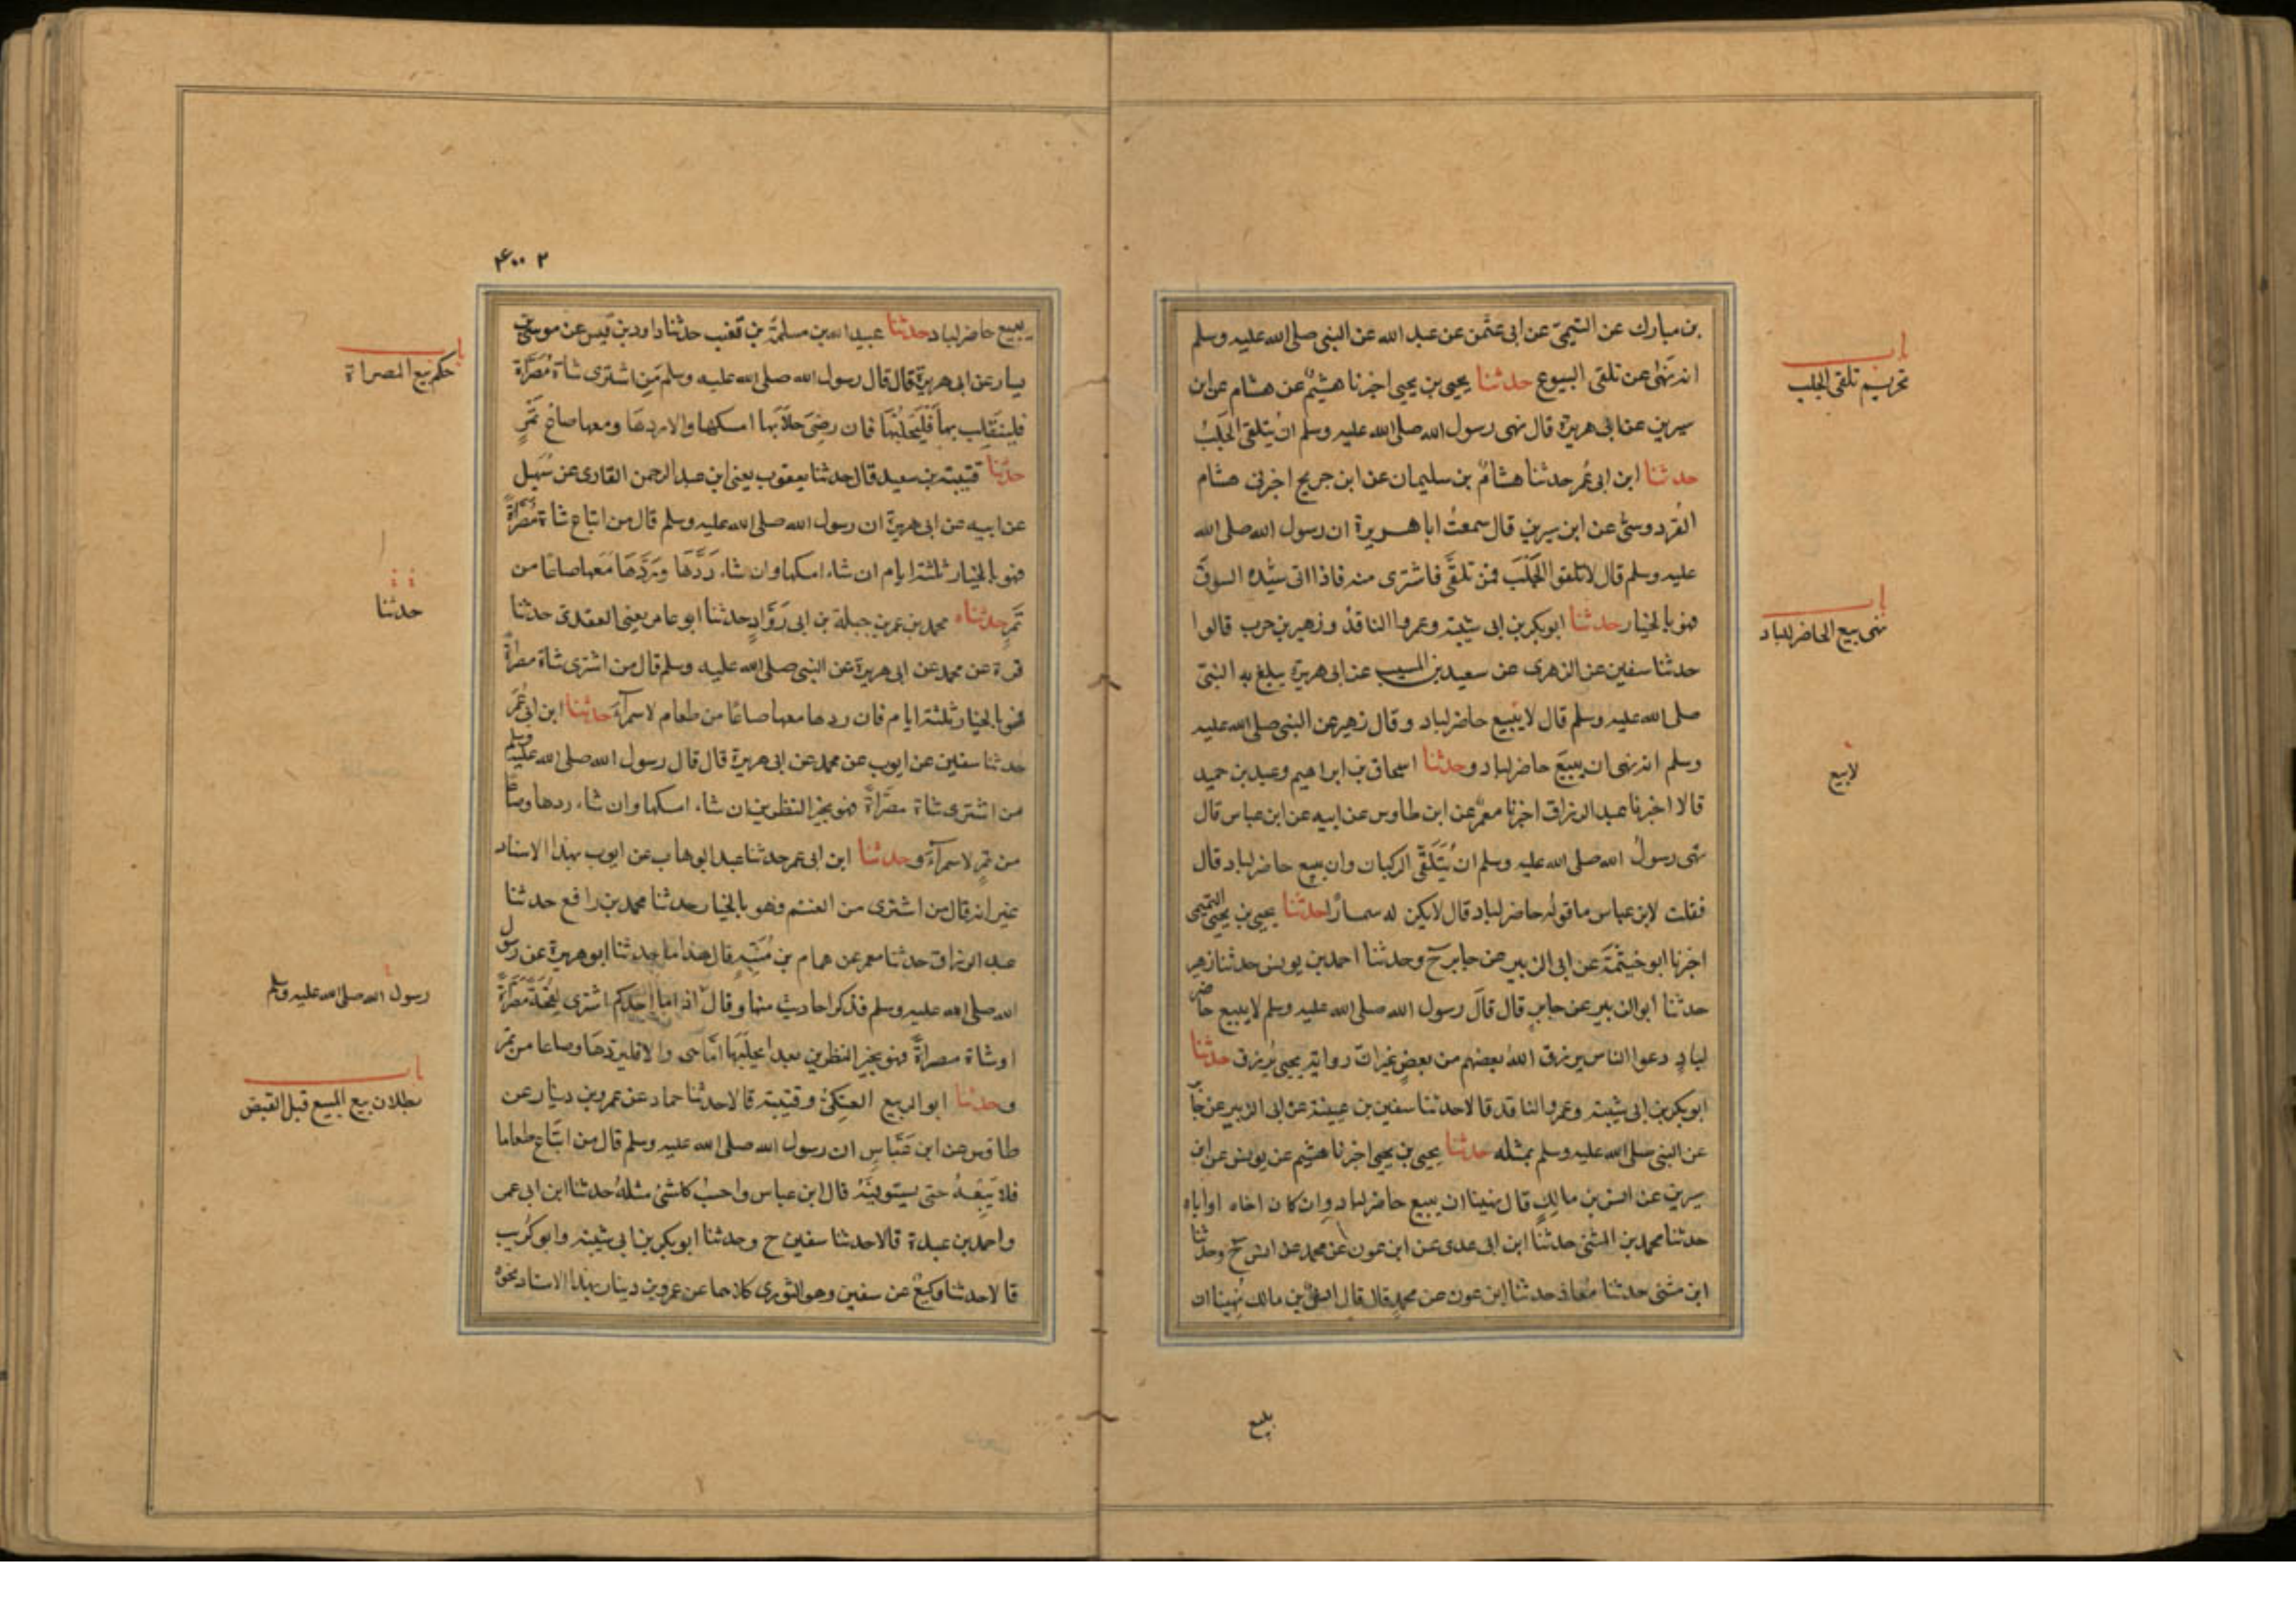 باب
تحريم تلقى الجلب
بن مبارك عن التيمي عن ابى عثمن عن عبد الله عن النبى صلى الله عليه وسلم
انه نهى عن تلقى البيوع حدثنا يحيى بن يحيى اخبرنا هشيم عن هشام عن ابن
سيرين عن ابى هريرة قال نهى رسول الله صلى الله عليه وسلم ان يُتلقى الجلبُ
حدثنا ابن ابى عمر حدثنا هشام بن سليمان عن ابن جريج اخبرنى هشام
القردوسى عن ابن سيرين قال سمعت ابا هريرة ان رسول الله صلى الله
عليه وسلم قال لا تلقوا الجلب فمن تلقى فاشترى منه فاذا اتى سيده السوق
فهو بالخيار حدثنا ابو بكر بن ابى شيبة وعمرو الناقد وزهير بن حرب قالوا
باب
نهى بيع الحاضر للباد
حدثنا سفين عن الزهرى عن سعيد بن المسيب عن ابى هريرة يبلغ به النبى
صلى الله عليه وسلم قال لا يبيع حاضر لباد وقال زهير عن النبى صلى الله عليه
وسلم انه نهى ان يبيع حاضر لباد وحدثنا اسحاق بن ابراهيم وعبد بن حميد
لا يبيع
قالا اخبرنا عبد الرزاق اخبرنا معمر عن ابن طاوس عن ابيه عن ابن عباس قال
نهى رسول الله صلى الله عليه وسلم ان يُتَلَقَّى الركبان وان يبيع حاضر لباد قال
فقلت لابن عباس ما قوله حاضر لباد قال لا يكن له سمسارًا حدثنا يحيى بن يحيى التميمى
اخبرنا ابو خيثمة عن ابى الزبير عن جابر ح وحدثنا احمد بن يونس حدثنا زهير
حدثنا ابو الزبير عن جابر قال قال رسول الله صلى الله عليه وسلم لا يبيع حاضر
لباد دعوا الناس يرزق الله بعضهم من بعض غير ان رواية يحيى يُرزق حدثنا
ابو بكر بن ابى شيبة وعمرو الناقد قالا حدثنا سفين بن عيينة عن ابى الزبير عن جابر
عن النبى صلى الله عليه وسلم بمثله حدثنا يحيى بن يحيى اخبرنا هشيم عن يونس عن ابن
سيرين عن انس بن مالك قال نهينا ان يبيع حاضر لباد وان كان اخاه او اباه
حدثنا محمد بن المثنى حدثنا ابن ابى عدى عن ابن عون عن محمد عن انس ح وحدثنا
ابن مثنى حدثنا معاذ حدثنا ابن عون عن محمد قال قال انس بن مالك نُهينا ان
يبيع
يبيع حاضر لباد حدثنا عبد الله بن مسلمة بن قعنب حدثنا داود بن قيس عن موسى بن
باب
حكم بيع المصراة
يسار عن ابى هريرة قال قال رسول الله صلى الله عليه وسلم من اشترى شاة مُصَرَّاة
فلينقلب بها فليحلبها فان رضى حلابها امسكها والا ردها ومعها صاع تمر
حدثنا قتيبة بن سعيد قال حدثنا يعقوب يعنى ابن عبد الرحمن القارى عن سهيل
عن ابيه عن ابى هريرة ان رسول الله صلى الله عليه وسلم قال من ابتاع شاة مصراة
فهو بالخيار ثلثة ايام ان شاء امسكها وان شاء ردها ورد معها صاعا من
تمر حدثناه محمد بن عمرو بن جبلة بن ابى رواد حدثنا ابو عامر يعنى العقدى حدثنا
حدثنا
قرة عن محمد عن ابى هريرة عن النبى صلى الله عليه وسلم قال من اشترى شاة مصراة
فهو بالخيار ثلثة ايام فان ردها معها صاعا من طعام لا سمراء حدثنا ابن ابى عمر
حدثنا سفين عن ايوب عن محمد عن ابى هريرة قال قال رسول الله صلى الله عليه وسلم
من اشترى شاة مصراة فهو بخير النظرين ان شاء امسكها وان شاء ردها وصاعا
من تمر لا سمراء وحدثنا ابن ابى عمر حدثنا عبد الوهاب عن ايوب بهذا الاسناد
غير انه قال من اشترى من الغنم فهو بالخيار حدثنا محمد بن رافع حدثنا
عبد الرزاق حدثنا معمر عن همام بن منبه قال هذا ما حدثنا ابو هريرة عن رسول
الله صلى الله عليه وسلم فذكر احاديث منها وقال اذا ما احدكم اشترى لقحة مصراة
رسول الله صلى الله عليه وسلم
او شاة مصراة فهو بخير النظرين بعد ان يحلبها اما هى والا فليردها وصاعا من تمر
وحدثنا ابو الربيع العتكى وقتيبة قالا حدثنا حماد عن عمرو بن دينار عن
باب
بطلان بيع المبيع قبل القبض
طاوس عن ابن عباس ان رسول الله صلى الله عليه وسلم قال من ابتاع طعاما
فلا يبعه حتى يستوفيه قال ابن عباس واحسب كل شئ مثله حدثنا ابن ابى عمر
واحمد بن عبدة قالا حدثنا سفين ح وحدثنا ابو بكر بن ابى شيبة وابو كريب
قالا حدثنا وكيع عن سفين وهو الثورى كلاهما عن عمرو بن دينار بهذا الاسناد نحوه